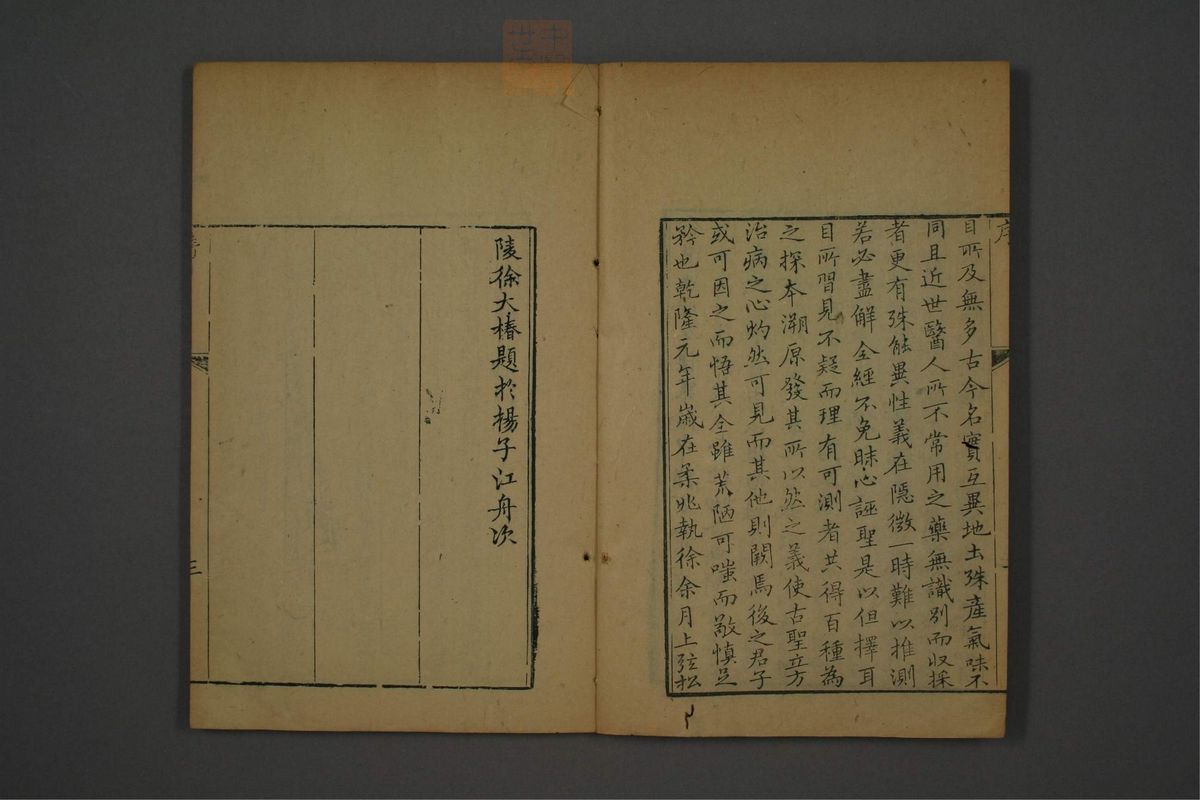 序
目所及無多古今名實互異地土殊產氣味不
同且近世醫人所不常用之藥無識別而收採
者更有殊能異性義在隱微一時難以推測
若必盡解全經不免昧心誣聖是以但擇耳
目所習見不疑而理有可測者共得百種為
之探本溯原發其所以然之義使古聖立方
治病之心灼然可見而其他則闕焉後之君子
或可因之而悟其全雖荒陋可嗤而敬慎足
矜也乾隆元年歲在柔兆執徐余月上弦松
陵徐大椿題於楊子江舟次
三